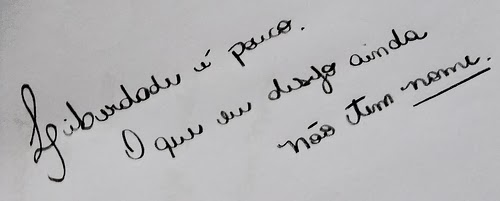 Liberdade é pouco.
O que eu desejo ainda
não tem nome.